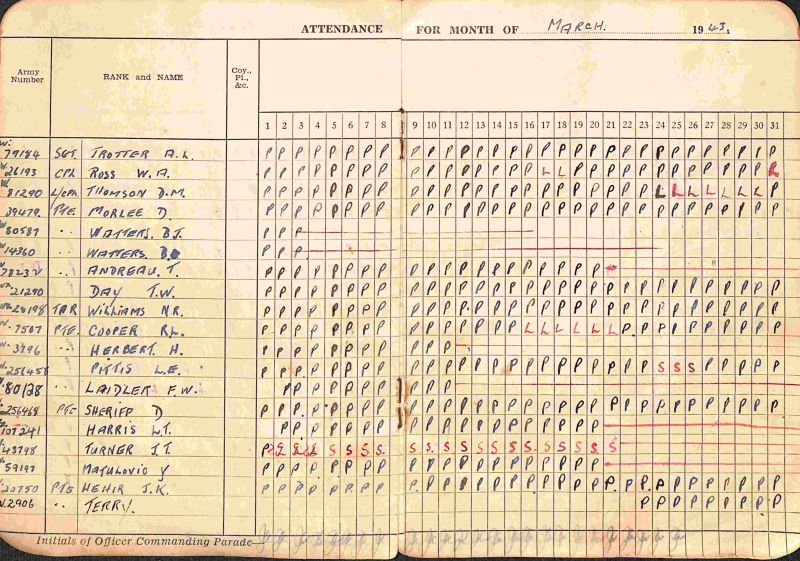 ATTENDANCE FOR MONTH OF MARCH. 1943.
Army Number RANK and NAME Coy., Pl., &c.
1 2 3 4 5 6 7 8 9 10 11 12 13 14 15 16 17 18 19 20 21 22 23 24 25 26 27 28 29 30 31
79184 SGT. TROTTER A.L. P P P P P P P P P P P P P P P P P P P P P P P P P P P P P P P
26193 CPL ROSS W.A. P P P P P P P P P P P P P P P P L L P P P P P P P P P P P P
81290 L/CPL THOMSON D.M. P P P P P P P P P P P P P P P P P P P P P P P L L L L L L L P
39479 PTE. MORLEE D. P P P P P P P P P P P P P P P P P P P P P P P P P P P P P P P
80587 " WATTERS. B.J. P P P
14360 " WATTERS. P P P
" ANDREAU. T. P P P P P P P P P P P P P P P P P P P P
21290 " DAY T.W. P P P P P P P P P P P P P P P P P P P P P P P P P P P P P P P
28198 WILLIAMS N.R. P P P P P P P P P P P P P P P P P P P P P P P P P P P P P P P
7587 PTE. COOPER R.L. P P P P P P P P P P P P P P P L L L L L L P P P P P P P P P P
3796 " HERBERT. H. P P P P P P P P P P P
" PITTIS L.E. P P P P P P P P P P P P P P P P P P P P P P P S S S P P P P P
80128 " LAIDLER F.W. P P P P P P P P P P
256468 PTE SHERIFF D P P P P P P P P P P P P P P P P P P P P P P P P P P P P P P P
107241 HARRIS L.T. P P P P P P P P P P P P P P P P P P P
48798 TURNER J.T. P S S S S S S S S S S S S S S S S S S S S
59197 MATULOVIC V P P P P P P P P P P P P P P P P P P P P
20750 PTE HEHIR J.K. P P P P P P P P P P P P P P P P P P P P P P P P P P P P P P P
2906 TERRY. P P P P P P P P P
Initials of Officer Commanding Parade—